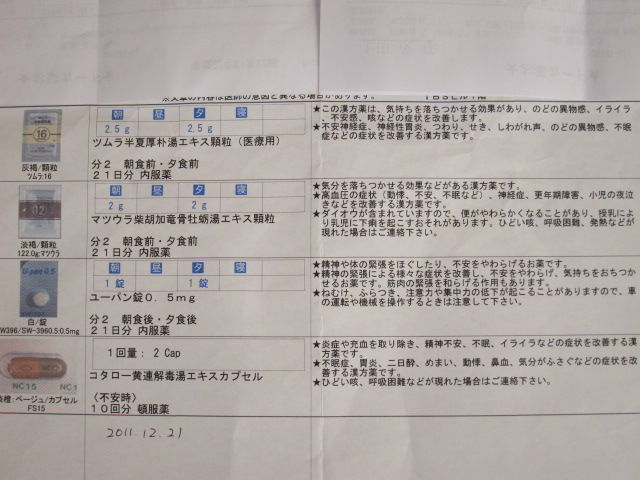 ※文章の内容は医師の意図と異なる場合があります。
朝 昼 夕 寝
2.5g 2.5g
ツムラ半夏厚朴湯エキス顆粒(医療用)
分2 朝食前・夕食前
21日分 内服薬
16
灰褐/顆粒
ツムラ:16
★この漢方薬は、気持ちを落ちつかせる効果があり、のどの異物感、イライラ
、不安感、咳などの症状を改善します。
★不安神経症、神経性胃炎、つわり、せき、しわがれ声、のどの異物感、不眠
症などの症状を改善する漢方薬です。
朝 昼 夕 寝
2g 2g
マツウラ柴胡加竜骨牡蛎湯エキス顆粒
分2 朝食前・夕食前
21日分 内服薬
淡褐/顆粒
122.0g:マツウラ
★気分を落ちつかせる効果などがある漢方薬です。
★高血圧の症状(動悸、不安、不眠など)、神経症、更年期障害、小児の夜泣
きなどを改善する漢方薬です。
★ダイオウが含まれていますので、便がやわらかくなることがあり、授乳によ
り乳児に下痢を起こすおそれがあります。ひどい咳、呼吸困難、発熱などが
現れた場合はご連絡下さい。
朝 昼 夕 寝
1錠 1錠
ユーパン錠0.5mg
分2 朝食後・夕食後
21日分 内服薬
U-pan 0.5
白/錠
W396/SW-3960.5:0.5mg
★精神や体の緊張をほぐしたり、不安をやわらげるお薬です。
★精神の緊張による様々な症状を改善し、不安をやわらげ、気持ちをおちつか
せるお薬です。筋肉の緊張を和らげる作用もあります。
★ねむけ、ふらつき、注意力や集中力の低下が起こることがありますので、車
の運転や機械を操作するときは注意して下さい。
1回量: 2 Cap
コタロー黄連解毒湯エキスカプセル
〈不安時〉
10回分 頓服薬
NC15 NC1
橙:ベージュ/カプセル
FS15
★炎症や充血を取り除き、精神不安、不眠、イライラなどの症状を改善する漢
方薬です。
★不眠症、胃炎、二日酔、めまい、動悸、鼻血、気分がふさぐなどの症状を改
善する漢方薬です。
★ひどい咳、呼吸困難などが現れた場合はご連絡下さい。
2011.12.21